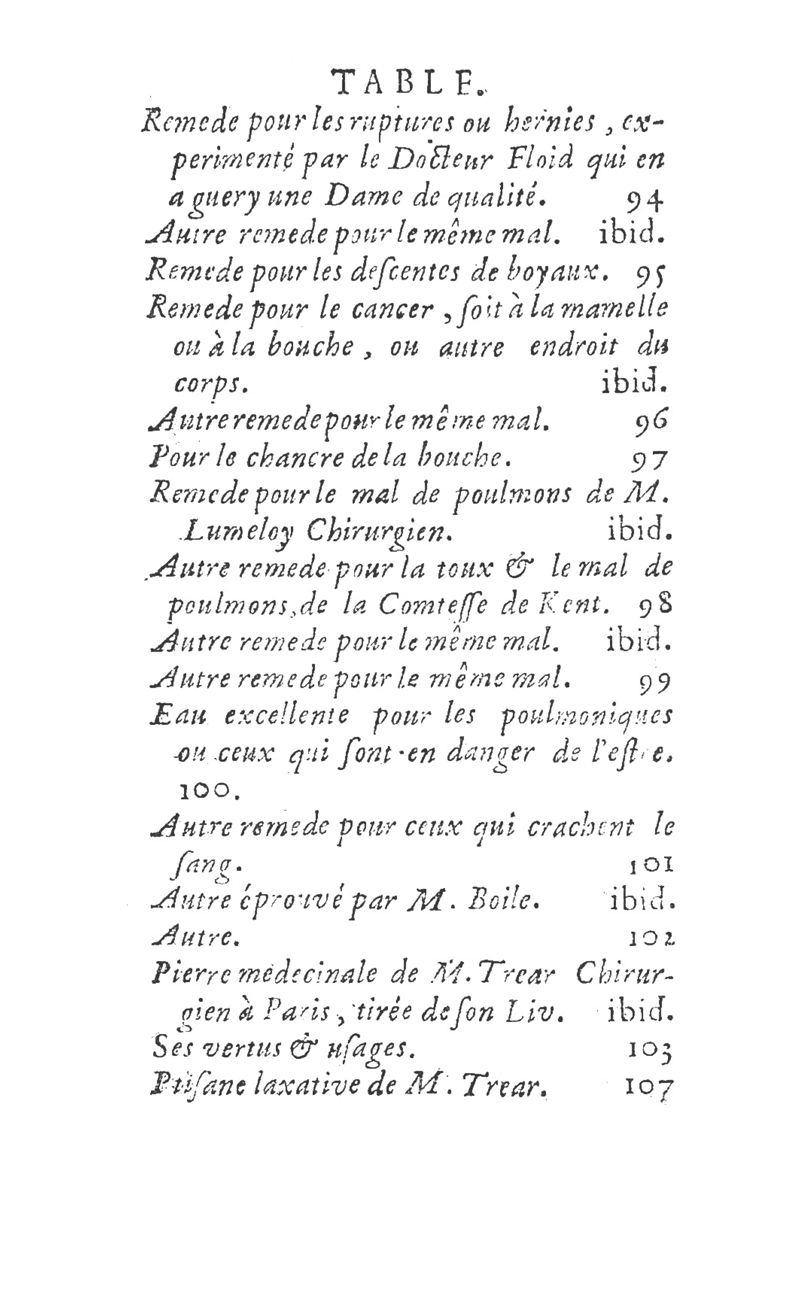 TABLE.
Remede pour les ruptures ou hernies, ex-
perimenté par le Docteur Floid qui en
a guery une Dame de qualité. 94
Autre remede pour le même mal. ibid.
Remede pour les deſcentes de boyaux. 95
Remede pour le cancer, ſoit à la mamelle
ou à la bouche, ou autre endroit du
corps. ibid.
Autre remede pour le même mal. 96
Pour le chancre de la bouche. 97
Remede pour le mal de poulmons de M.
Lumeloy Chirurgien. ibid.
Autre remede pour la toux & le mal de
poulmons, de la Comteſſe de Kent. 98
Autre remede pour le même mal. ibid.
Autre remede pour le même mal. 99
Eau excellente pour les poulmoniques
ou ceux qui ſont en danger de l'eſtre.
100.
Autre remede pour ceux qui crachent le
ſang. 101
Autre éprouvé par M. Boile. ibid.
Autre. 102
Pierre medecinale de M. Trear Chirur-
gien à Paris, tirée de ſon Liv. ibid.
Ses vertus & uſages. 103
Ptiſane laxative de M. Trear. 107